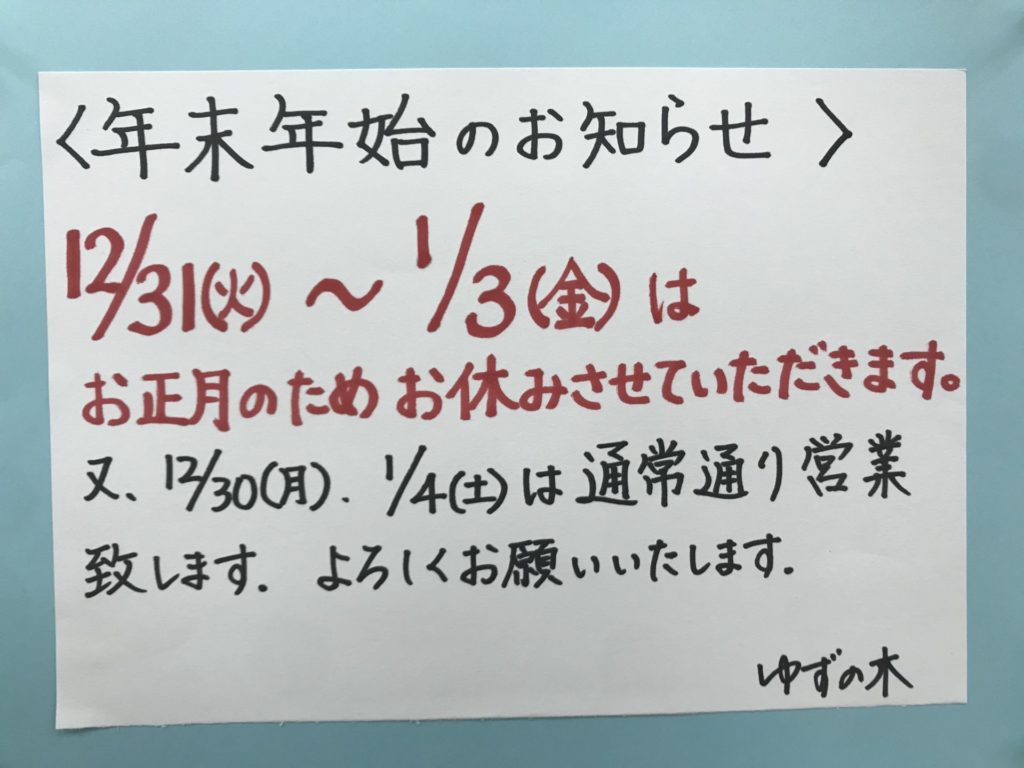 〈年末年始のお知らせ 〉
12/31(火) ～ 1/3(金) は
お正月のため お休みさせていただきます。
又、12/30(月)．1/4(土)は通常通り営業
致します．よろしくお願いいたします．
ゆずの木